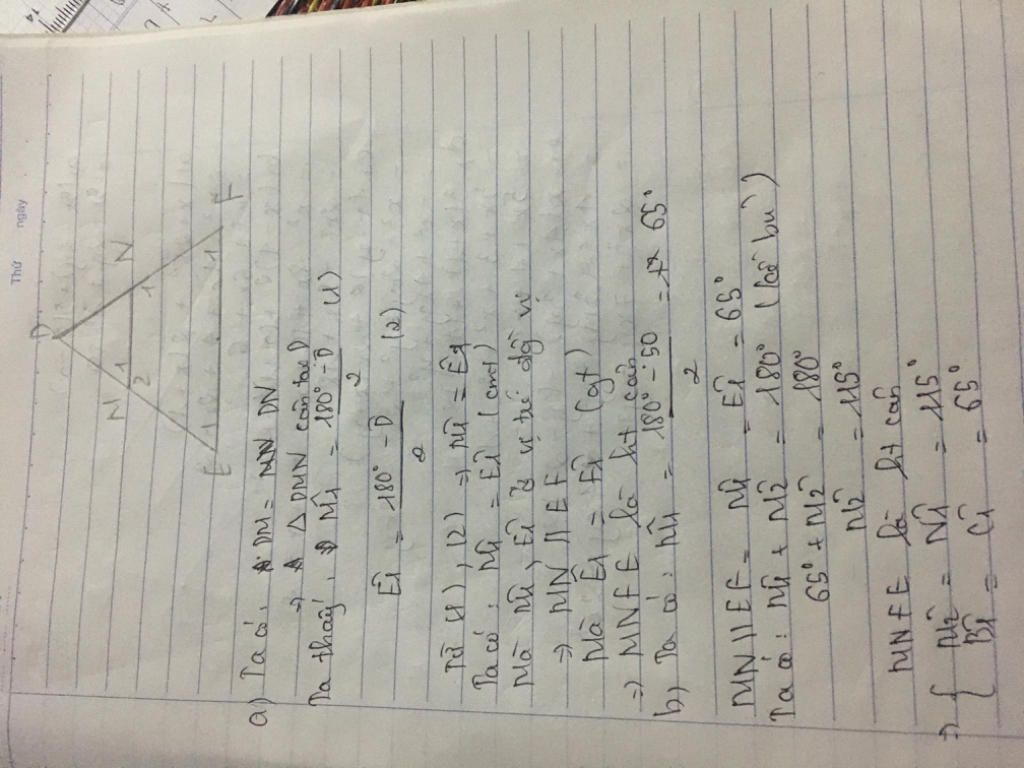 Thứ ngày
D
N
N
1
1
2
E
1
1
F
a) Ta có: DM = DN
=> △ DMN cân tại D
Ta thấy: M̂1 = 180° - D̂ / 2 (1)
Ê1 = 180° - D̂ / 2 (2)
Từ (1), (2) => M̂1 = Ê1
Ta có: M̂1 = Ê1 (cmt)
Mà M̂1, Ê1 ở vị trí đồng vị
=> MN // EF
Mà Ê1 = F̂1 (gt)
=> MNFE là ht cân
b) Ta có: M̂1 = 180° - 50 / 2 = 65°
MN // EF = M̂1 = Ê1 = 65°
Ta có: M̂1 + M̂2 = 180° (kề bù)
65° + M̂2 = 180°
M̂2 = 115°
MNFE là ht cân
=> { M̂2 = N̂1 = 115°
B̂1 = Ĉ1 = 65°